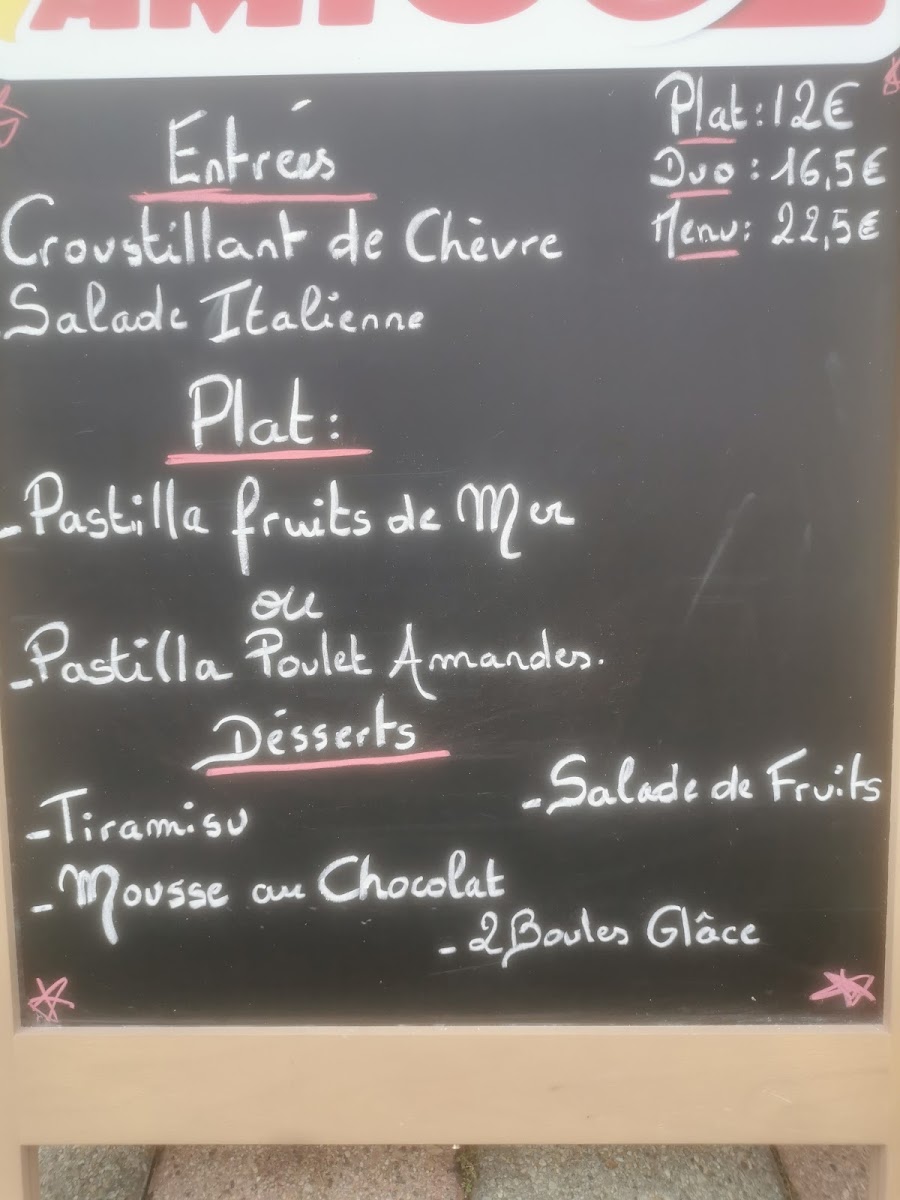 Entrées
Croustillant de Chèvre
Salade Italienne
Plat: 12€
Duo: 16,5€
Menu: 22,5€
Plat:
-Pastilla fruits de Mer
ou
-Pastilla Poulet Amandes.
Désserts
-Tiramisu
-Salade de Fruits
-Mousse au Chocolat
-2 Boules Glâce